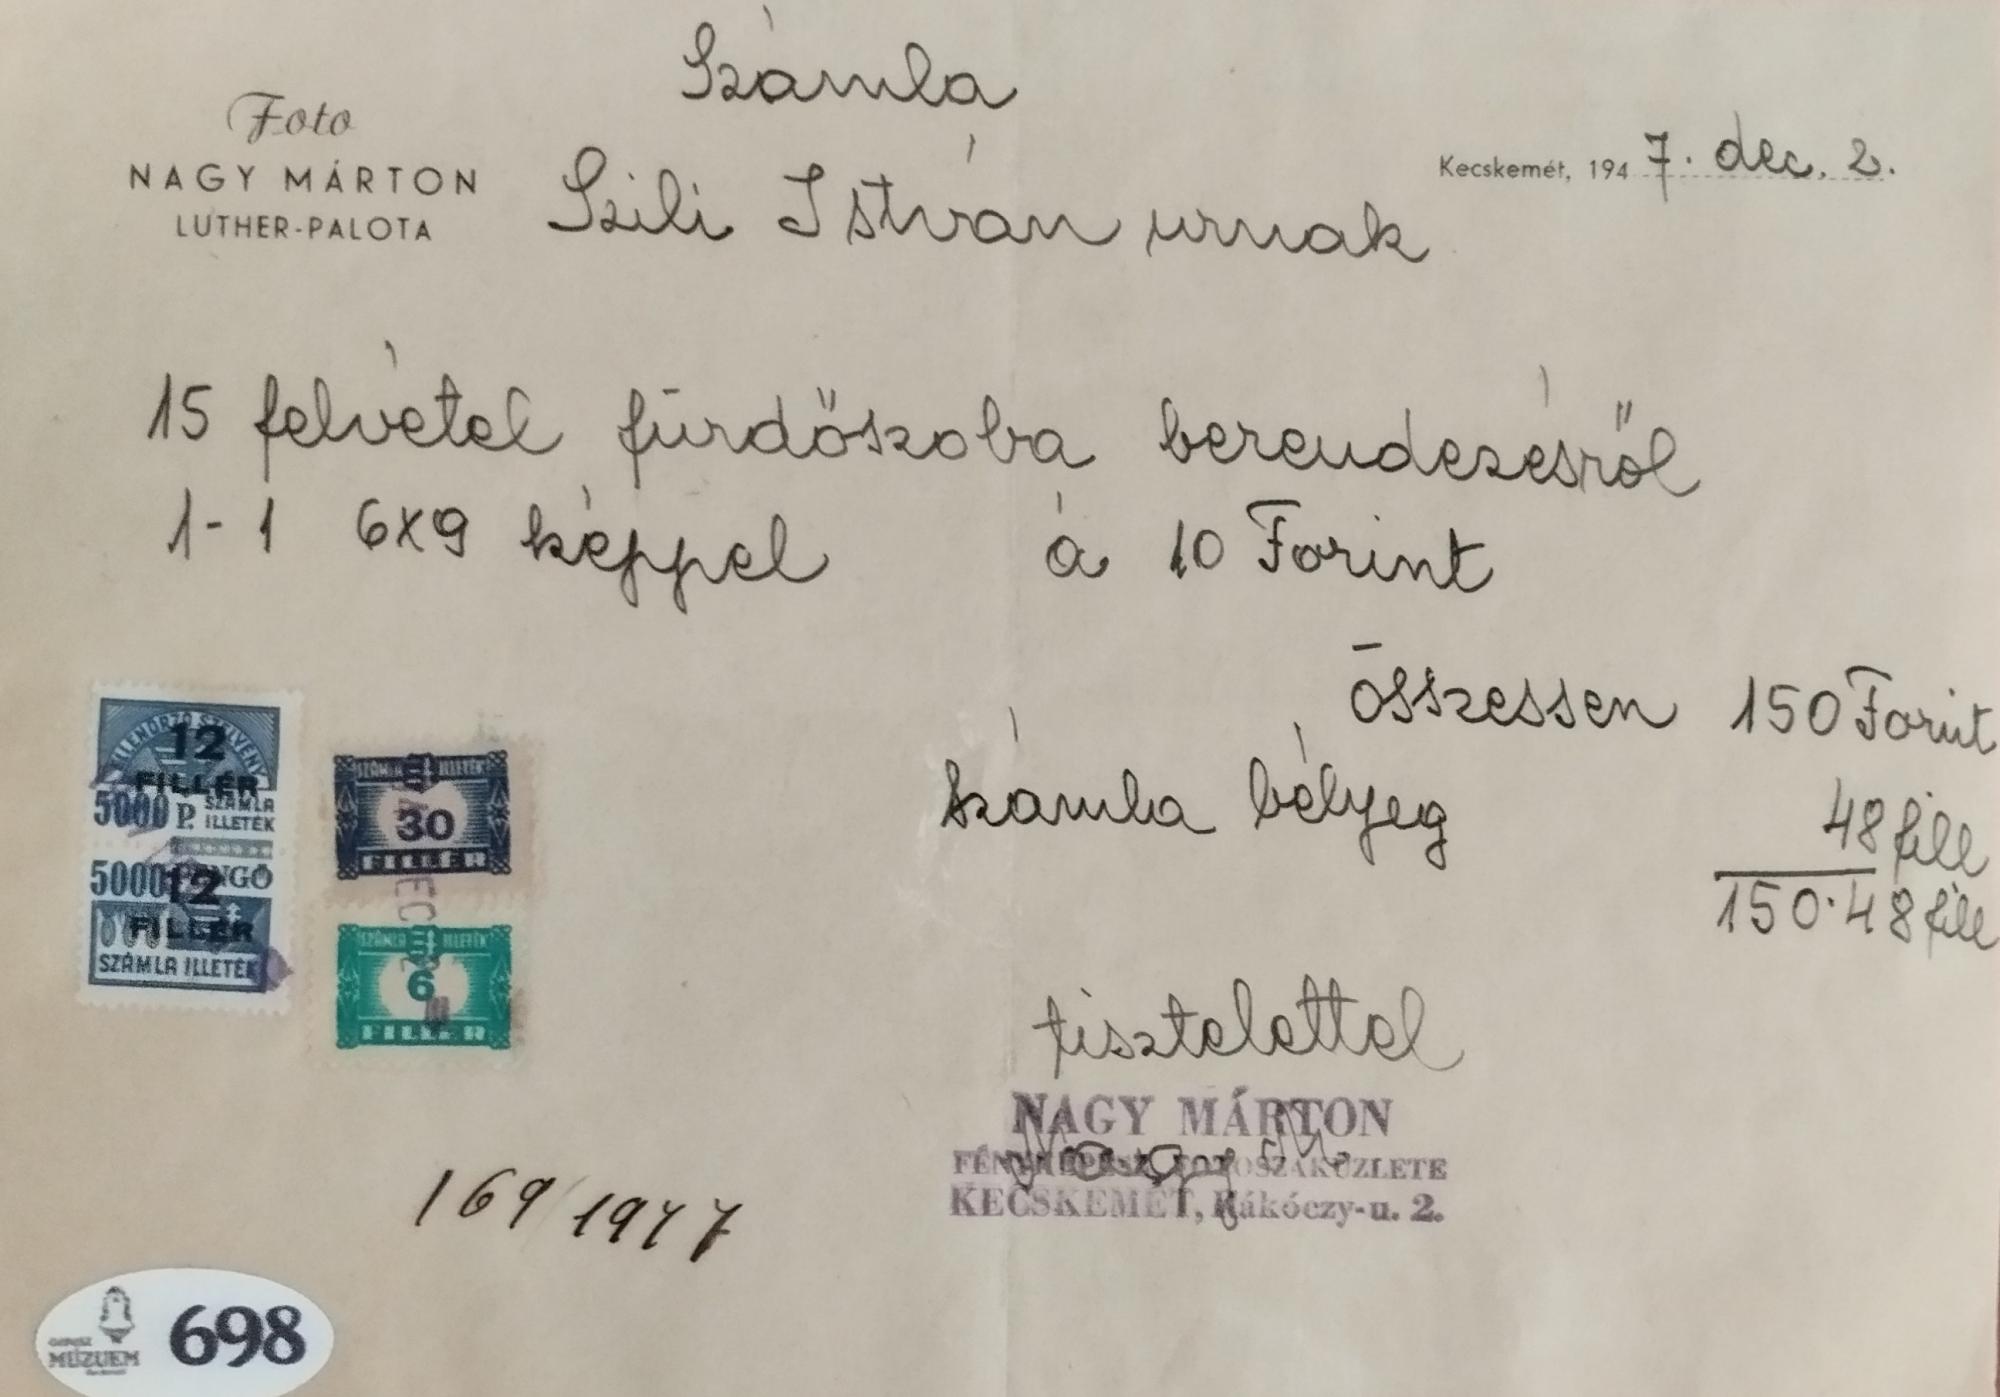 Számla
Foto
NAGY MÁRTON
LUTHER-PALOTA
Kecskemét, 1947. dec. 2.
Szili István urnak
15 felvétel fürdőszoba berendezésről
1-1 6x9 képpel á 10 Forint
összessen 150 Forint
számla bélyeg 48 fill
150.48 fill
tisztelettel
NAGY MÁRTON
FÉNYKÉPÉSZ, FOTOSZAKÜZLETE
KECSKEMÉT, Rákóczy-u. 2.
Nagy M.
ELLENŐRZŐ SZELVÉNY
12
FILLÉR
5000 P. SZÁMLA ILLETÉK
5000 PENGŐ
12
FILLÉR
SZÁMLA ILLETÉK
SZÁMLA ILLETÉK
30
FILLÉR
SZÁMLA ILLETÉK
6
FILLÉR
169/1947
MÚZUEM
698